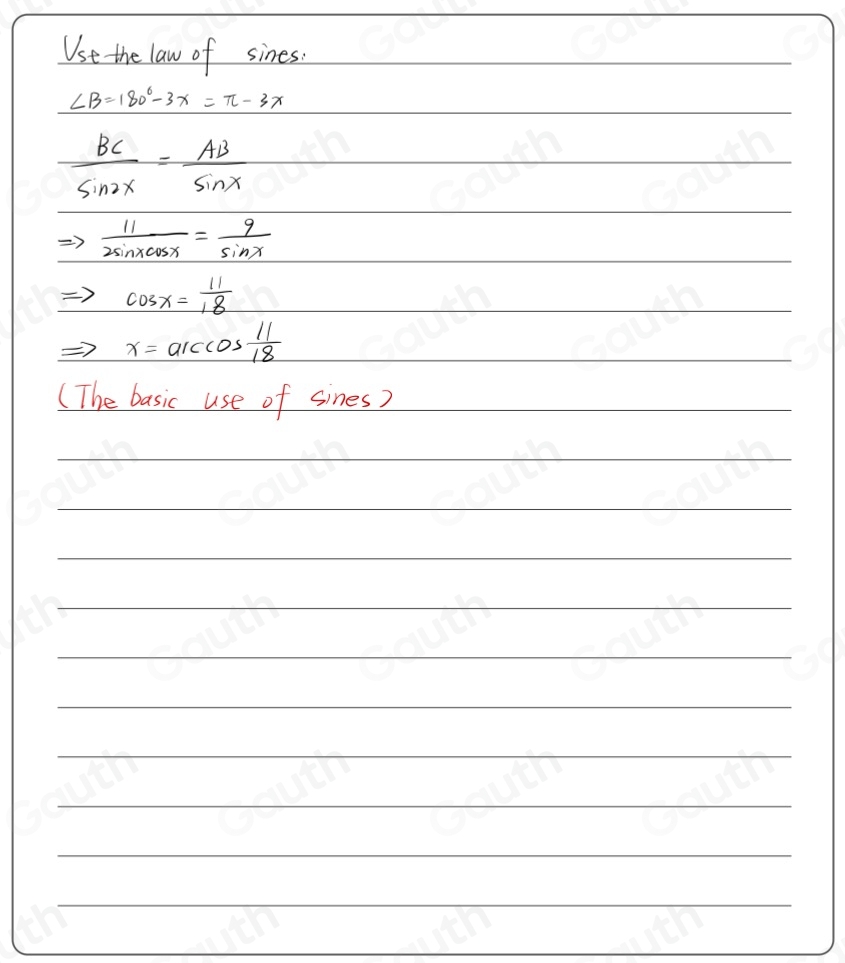 Use the law of sines:
∠B=180°-3x = π-3x
BC/sin2x = AB/sinx
=> 11/2sinxcosx = 9/sinx
=> cosx = 11/18
=> x = arccos 11/18
(The basic use of sines)